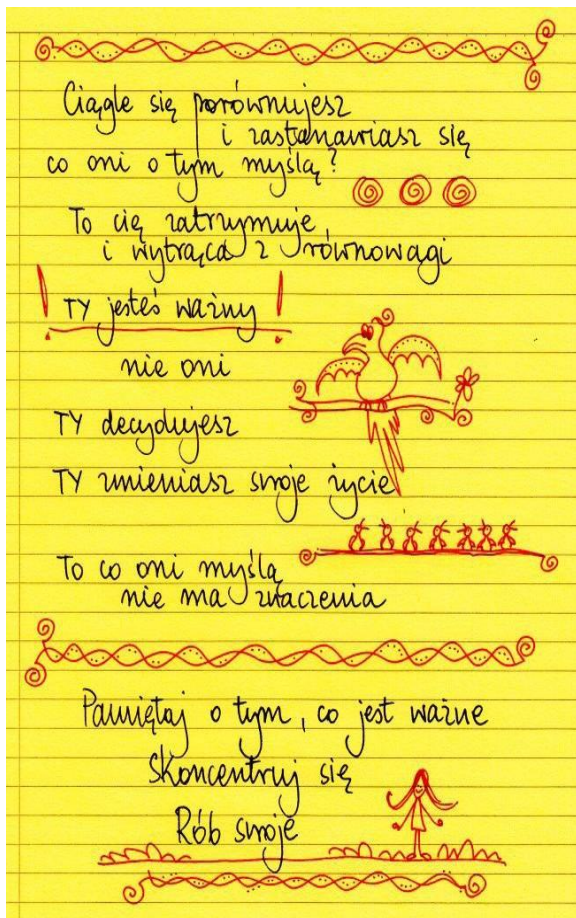 Ciągle się porównujesz
i zastanawiasz się
co oni o tym myślą?
To cię zatrzymuje
i wytrąca z równowagi
! TY jesteś ważny !
nie oni
TY decydujesz
TY zmieniasz swoje życie
To co oni myślą
nie ma znaczenia
Pamiętaj o tym, co jest ważne
Skoncentruj się
Rób swoje